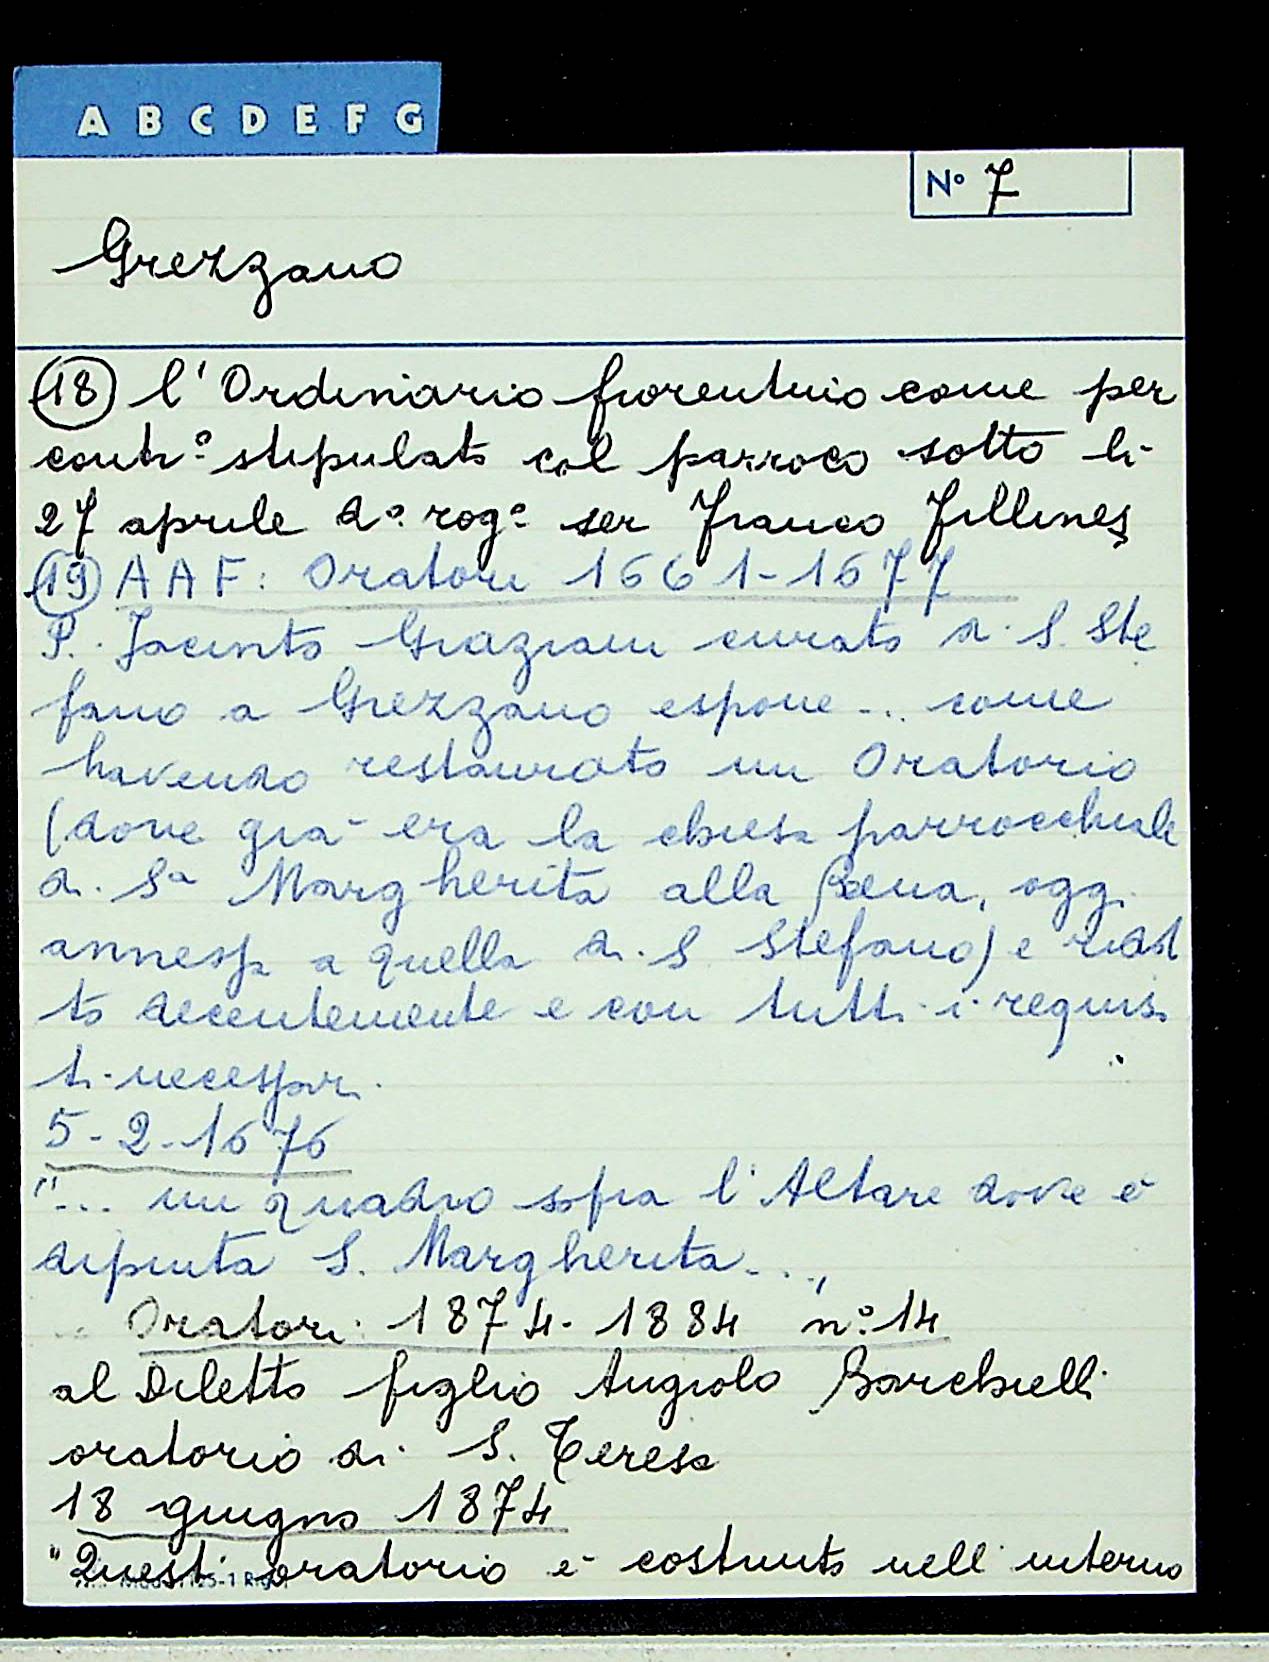 A B C D E F G
N° 7
Grezzano
(18) l'Ordinario fiorentino come per
contr° stipulato col parroco sotto li
27 aprile d° rog° ser Franco Fillines
(19) AAF: Oratori 1661-1677
P. Jacinto Graziani curato di S. Ste
fano a Grezzano espone... come
havendo restaurato un Oratorio
(dove già era la chiesa parrocchiale
di Sa Margherita alla Rena, oggi
annessa a quella di S. Stefano) e
to decentemente e con tutti i requisi
ti necessari
5-2-1676
"... un quadro sopra l'Altare dove è
dipinta S. Margherita...,
Oratori: 1874-1884 n°. 14
al Diletto figlio Angiolo Barchielli
oratorio di S. Teresa
18 giugno 1874
"Quest'oratorio è costruito nell'interno